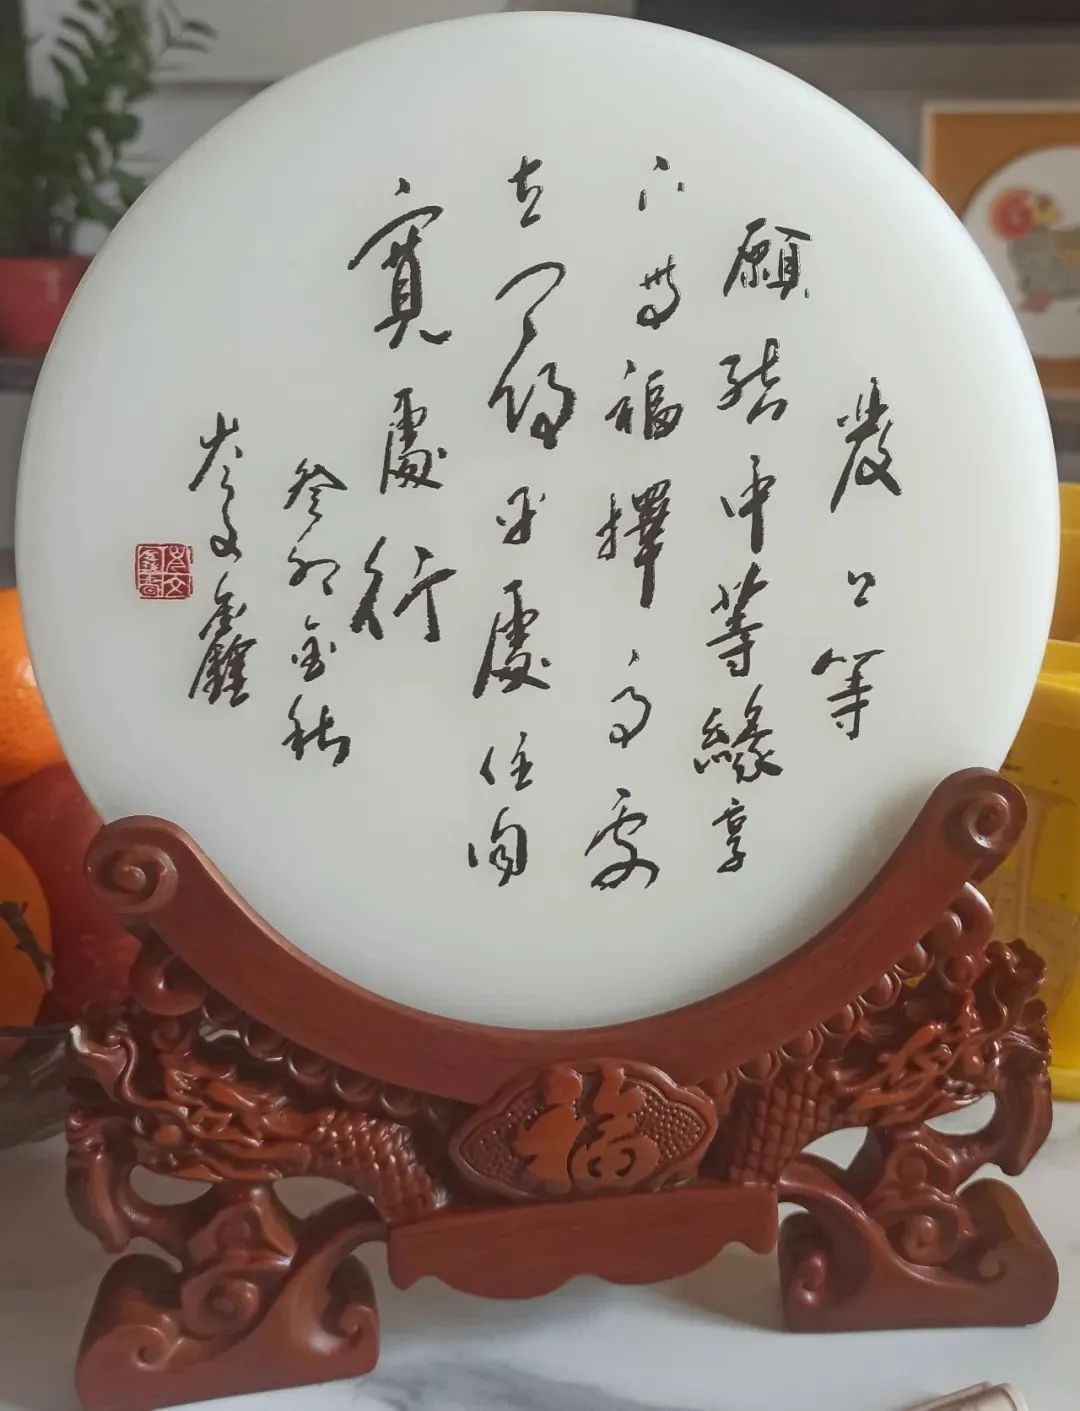 發上等
願結中等緣享
下等福擇高處
立尋平處住向
寬處行
癸卯金秋
岑文鑫
福